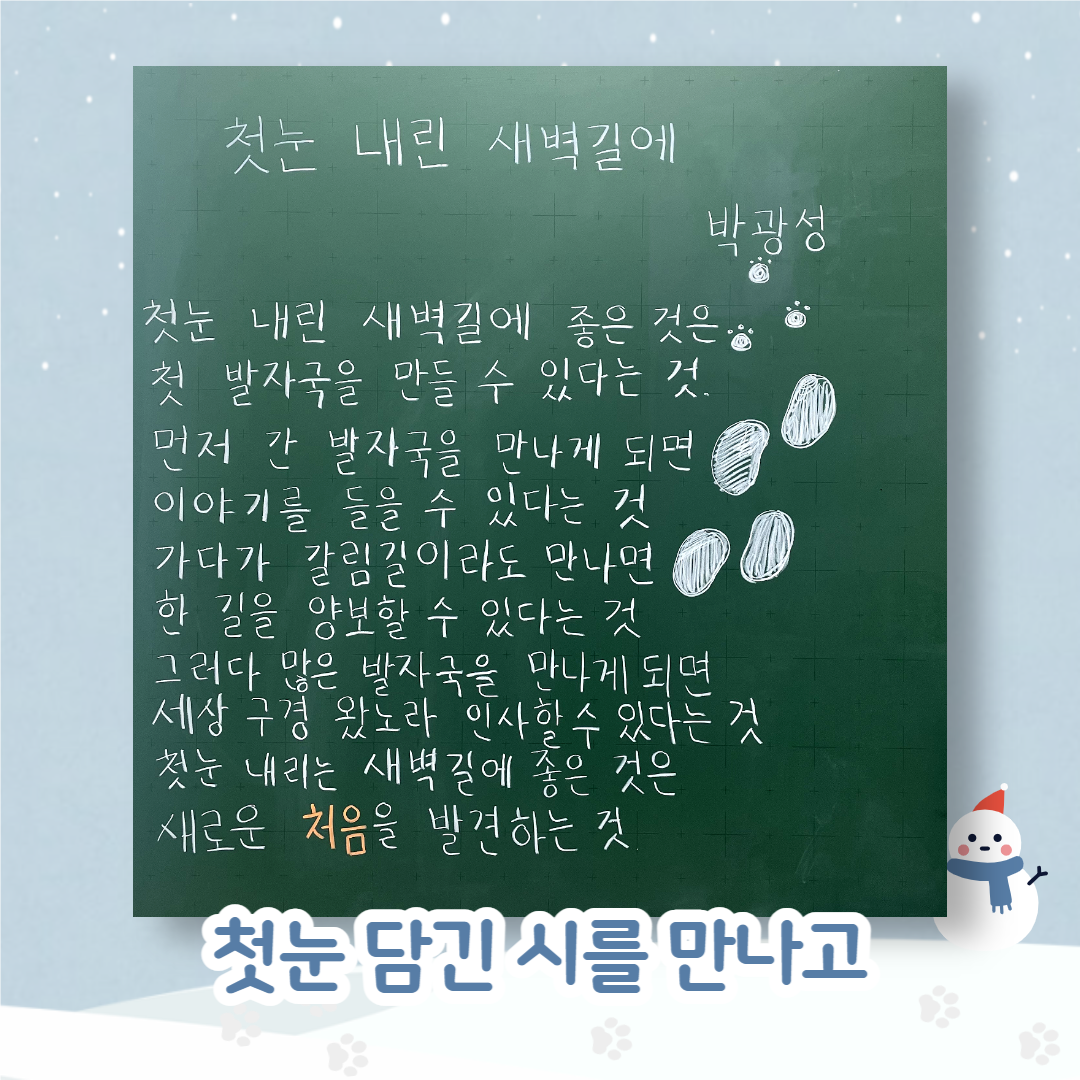 첫눈 내린 새벽길에
박광성
첫눈 내린 새벽길에 좋은 것은
첫 발자국을 만들 수 있다는 것.
먼저 간 발자국을 만나게 되면
이야기를 들을 수 있다는 것
가다가 갈림길이라도 만나면
한 길을 양보할 수 있다는 것
그러다 많은 발자국을 만나게 되면
세상 구경 왔노라 인사할 수 있다는 것
첫눈 내리는 새벽길에 좋은 것은
새로운 처음을 발견하는 것
첫눈 담긴 시를 만나고